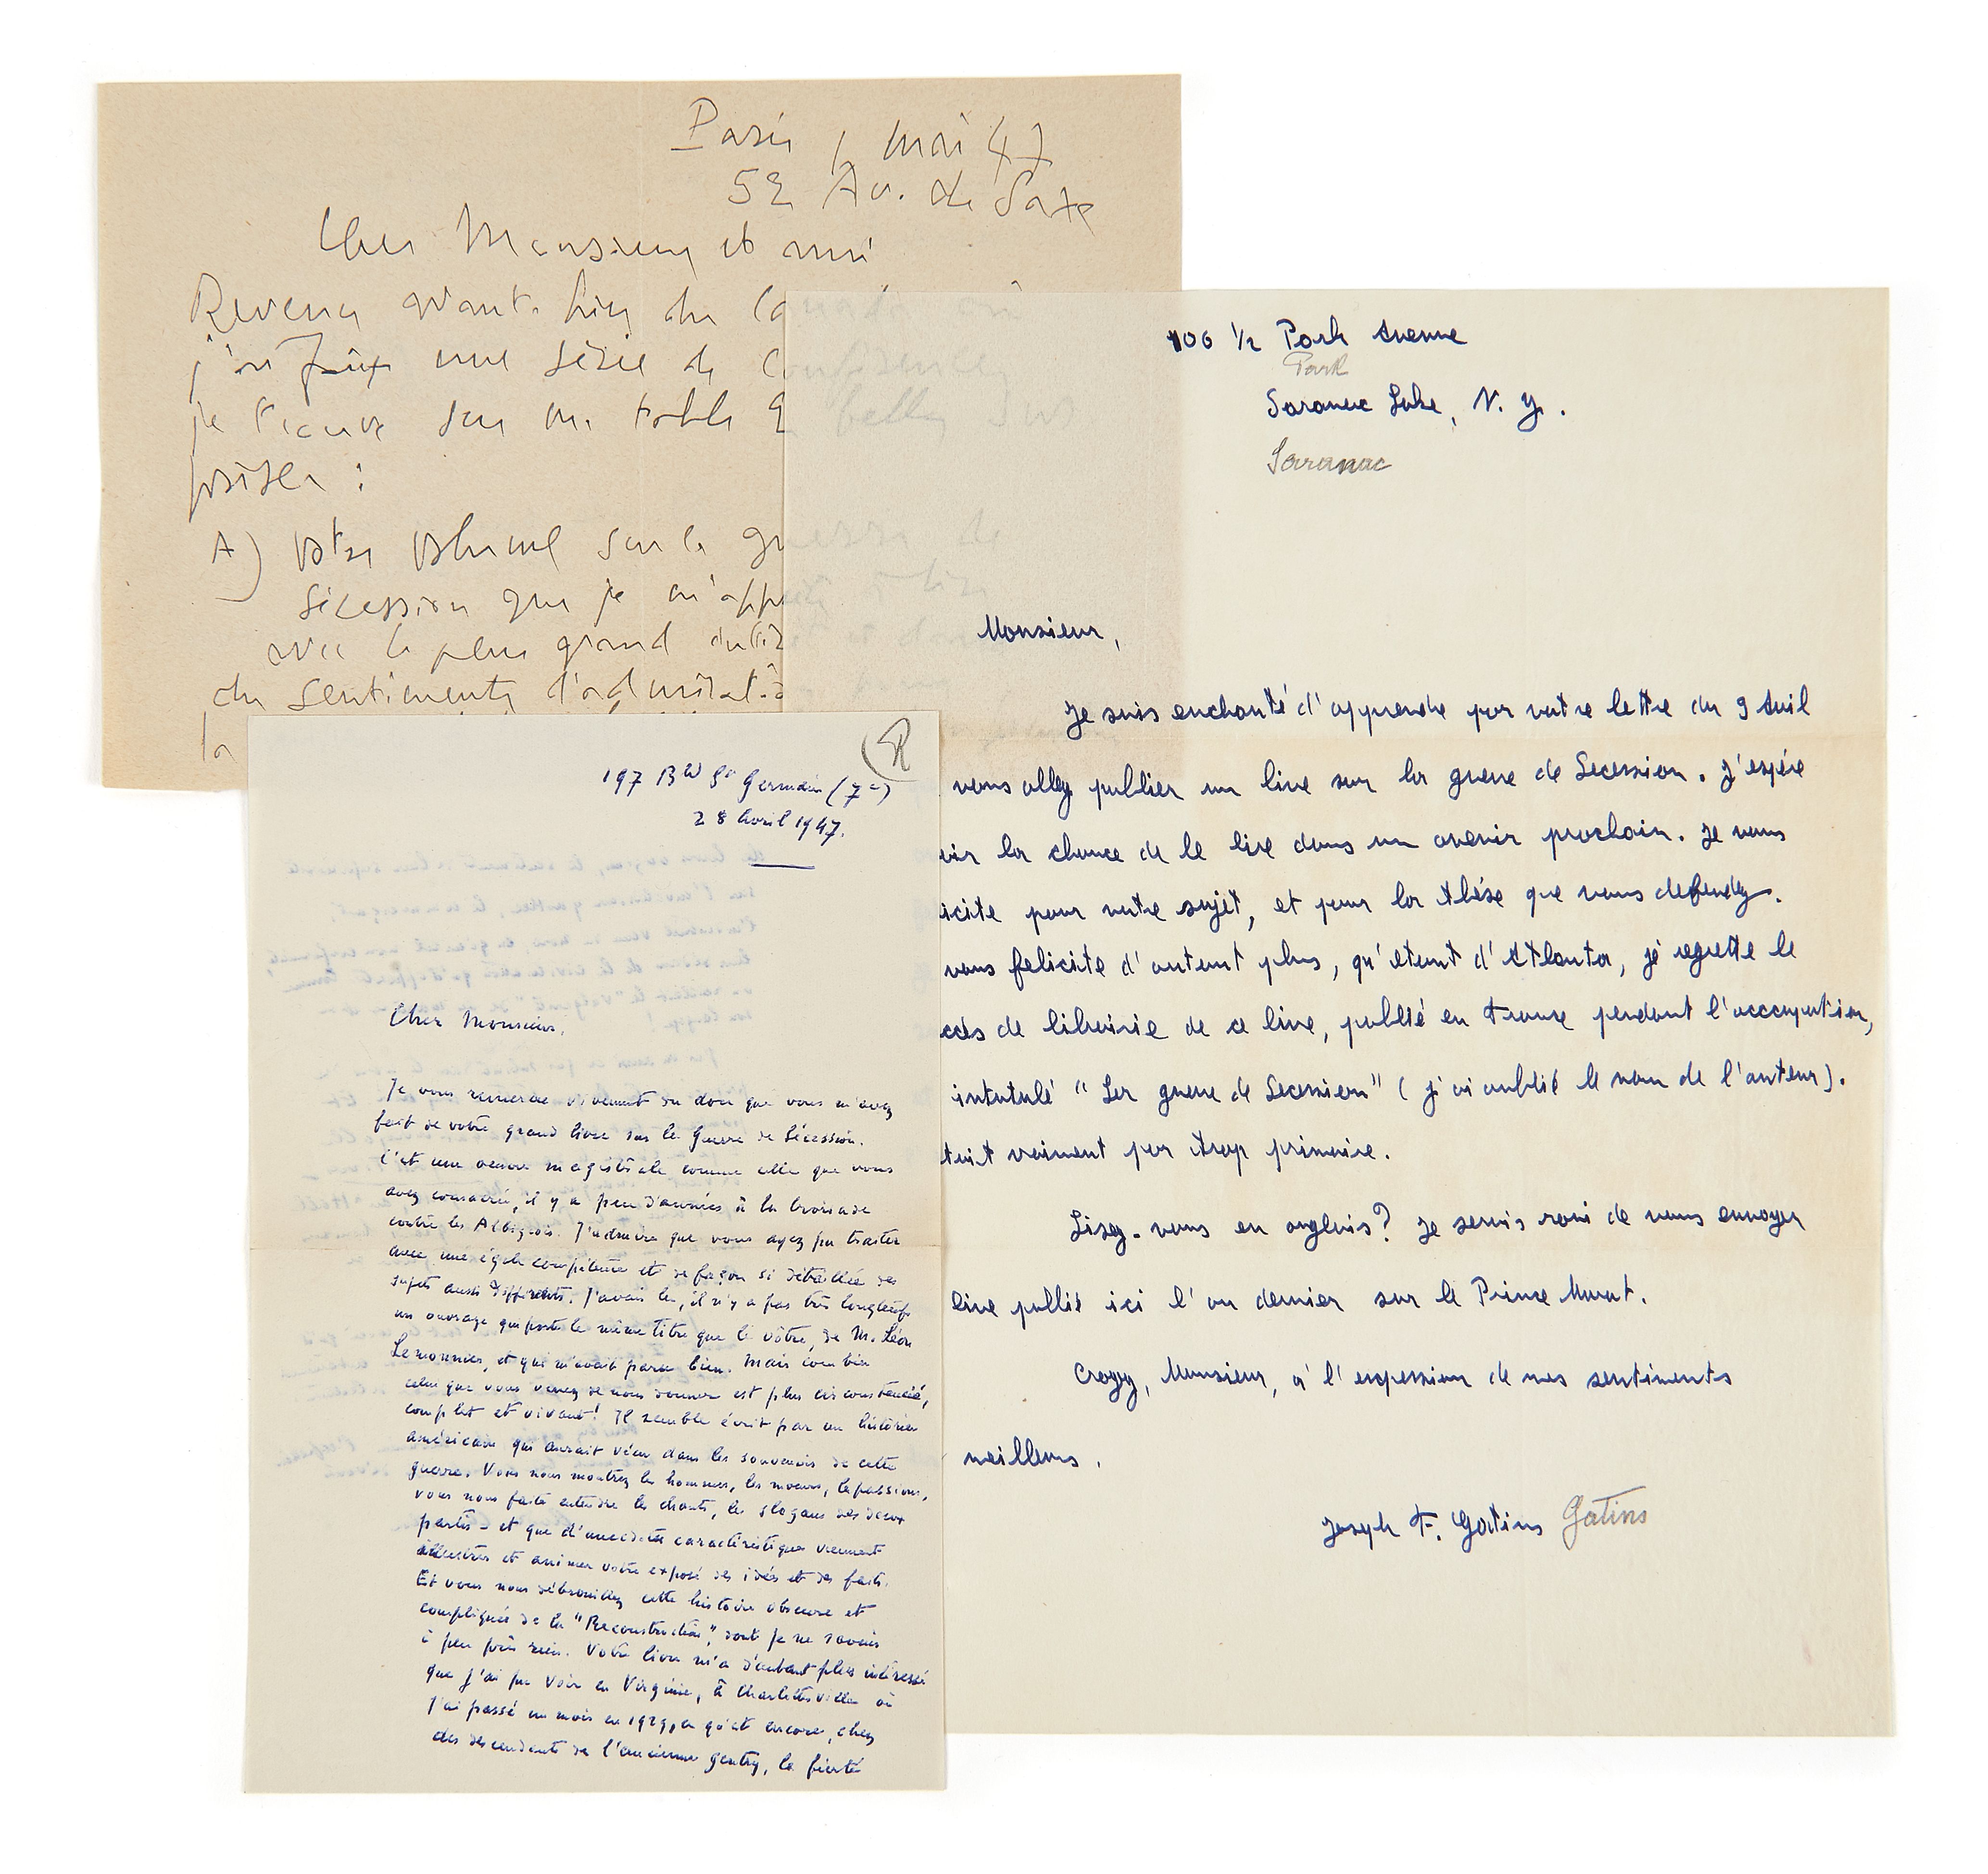 Paris 1 Mai 47
52 Av. de Saxe
Cher Monsieur et ami
Revenu avant-hier du Canada où
j'ai fait une série de conférences
je trouve sur ma table
A) votre volume sur la guerre de
Sécession que je m'apprête à lire
avec le plus grand
du sentiments d'admiration
la
106 1/2 Park Avenue
Park
Saranac Lake, N. Y.
Saranac
Monsieur,
Je suis enchanté d'apprendre par votre lettre du 9 Avil
vous allez publier un live sur la guerre de Secession. J'espére
oir la chance de le lire dans un avenir prochain. Je vous
icite pour votre sujet, et pour la thése que vous defendez.
vous felicite d'autant plus, qu'etant d'Atlanta, je regrette le
ccés de librairie de ce livre, publié en France pendant l'occcupation,
intutulé "La guerre de Secession" (j'ai oublié le nom de l'auteur).
tait vraiment par trop primaire.
Lisez-vous en anglais? Je serais ravi de vous envoyer
livre publié ici l'an dernier sur le Prince Murat.
Croyez, Monsieur, a l'expession de mes sentiments
meilleurs.
Joseph F. Gatins Gatins
R
197 Bld St Germain (7e)
28 Avril 1947.
Cher Monsieur,
Je vous remercie vivement du don que vous m'avez
fait de votre grand livre sur la Guerre de Sécession.
C'est une oeuvre magistrale comme celle que vous
avez consacrée, il y a peu d'années à la Croisade
contre les Albigeois. J'admire que vous ayez pu traiter
avec une égale compétence et de façon si détaillée des
sujets aussi différents. J'avais lu, il n'y a pas très longtemps
un ouvrage qui porte le même titre que le vôtre, de M. Léon
Lemonnier, et qui m'avait paru bien. Mais combien
celui que vous venez de nous donner est plus circonstancié,
complet et vivant! Il semble écrit par un historien
américain qui aurait vécu dans les souvenirs de cette
guerre. Vous nous montrez les hommes, les moeurs, les passions,
vous nous faites entendre les chants, les slogans des deux
partis - et que d'anecdotes caractéristiques viennent
illustrer et animer votre exposé des idées et des faits.
Et vous nous débrouillez cette histoire obscure et
compliquée de la "Reconstruction", dont je ne savais
à peu près rien. Votre livre m'a d'autant plus intéressé
que j'ai pu voir en Virginie, à Charlottesville où
j'ai passé un mois en 1929, ce qu'est encore, chez
des descendants de l'ancienne gentry, la fierté